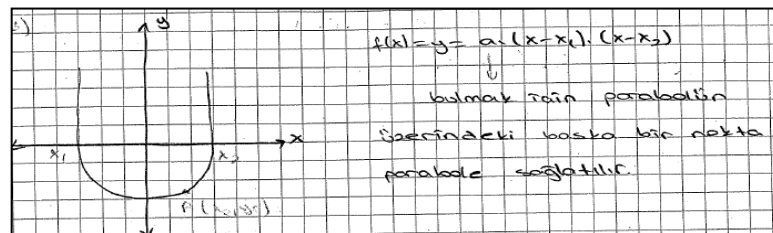 y
f(x)=y= a.(x-x₁).(x-x₂)
↓
bulmak için parabolün
x
üzerindeki başka bir nokta
x₁
x₂
parabole sağlatılır.